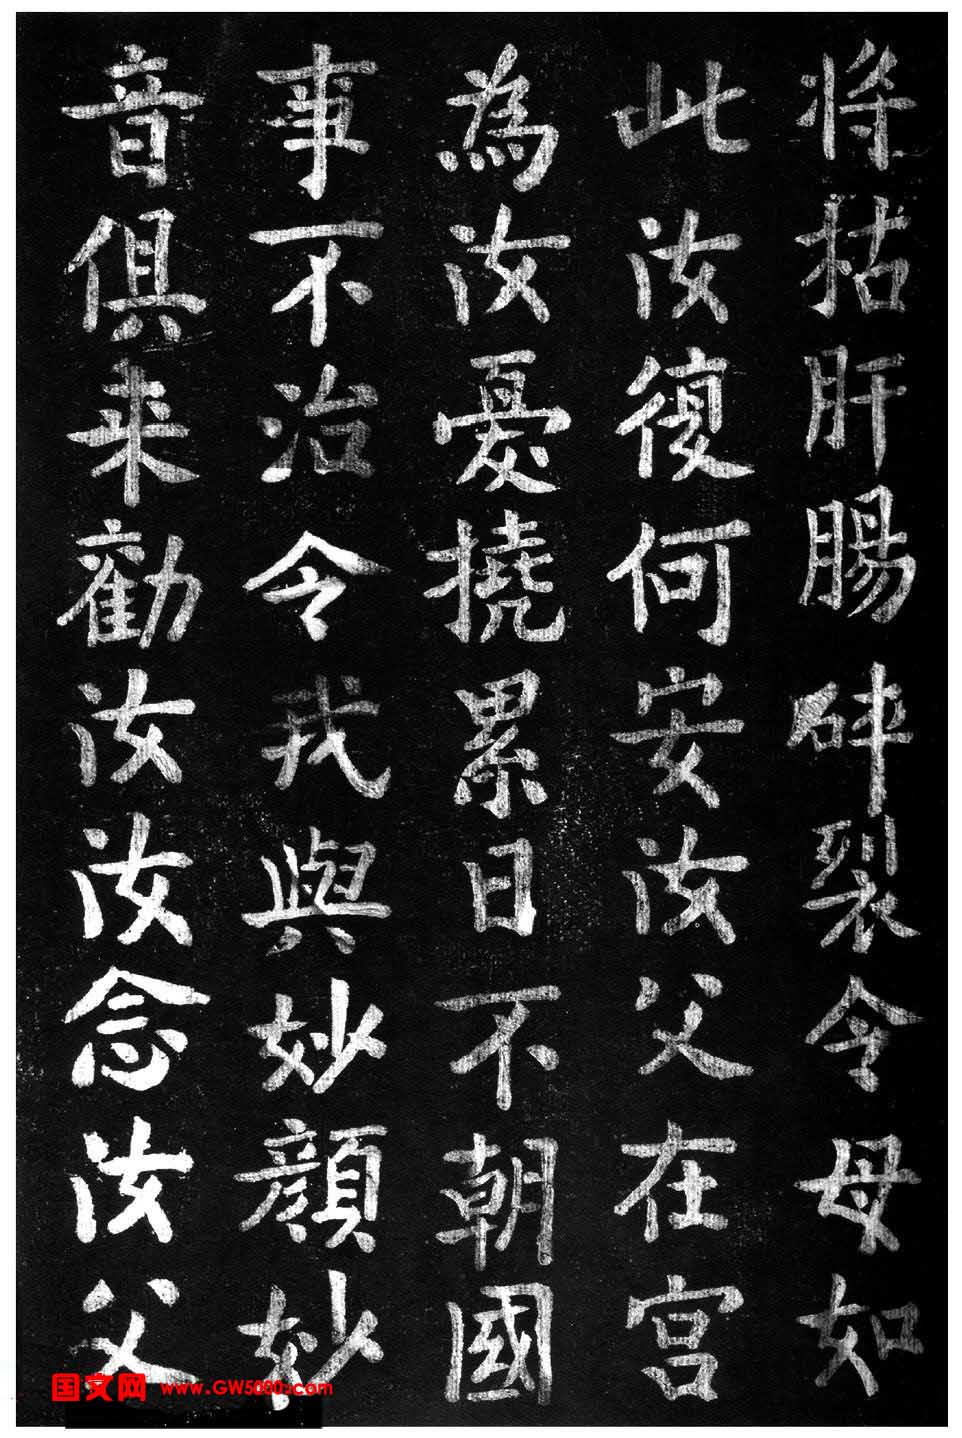 将枯肝腸碎裂令母如
此汝復何安汝父在宫
為汝憂撓累日不朝國
事不治令我與妙顔妙
音俱来勸汝汝念汝父
国文网 www.GW5000.com